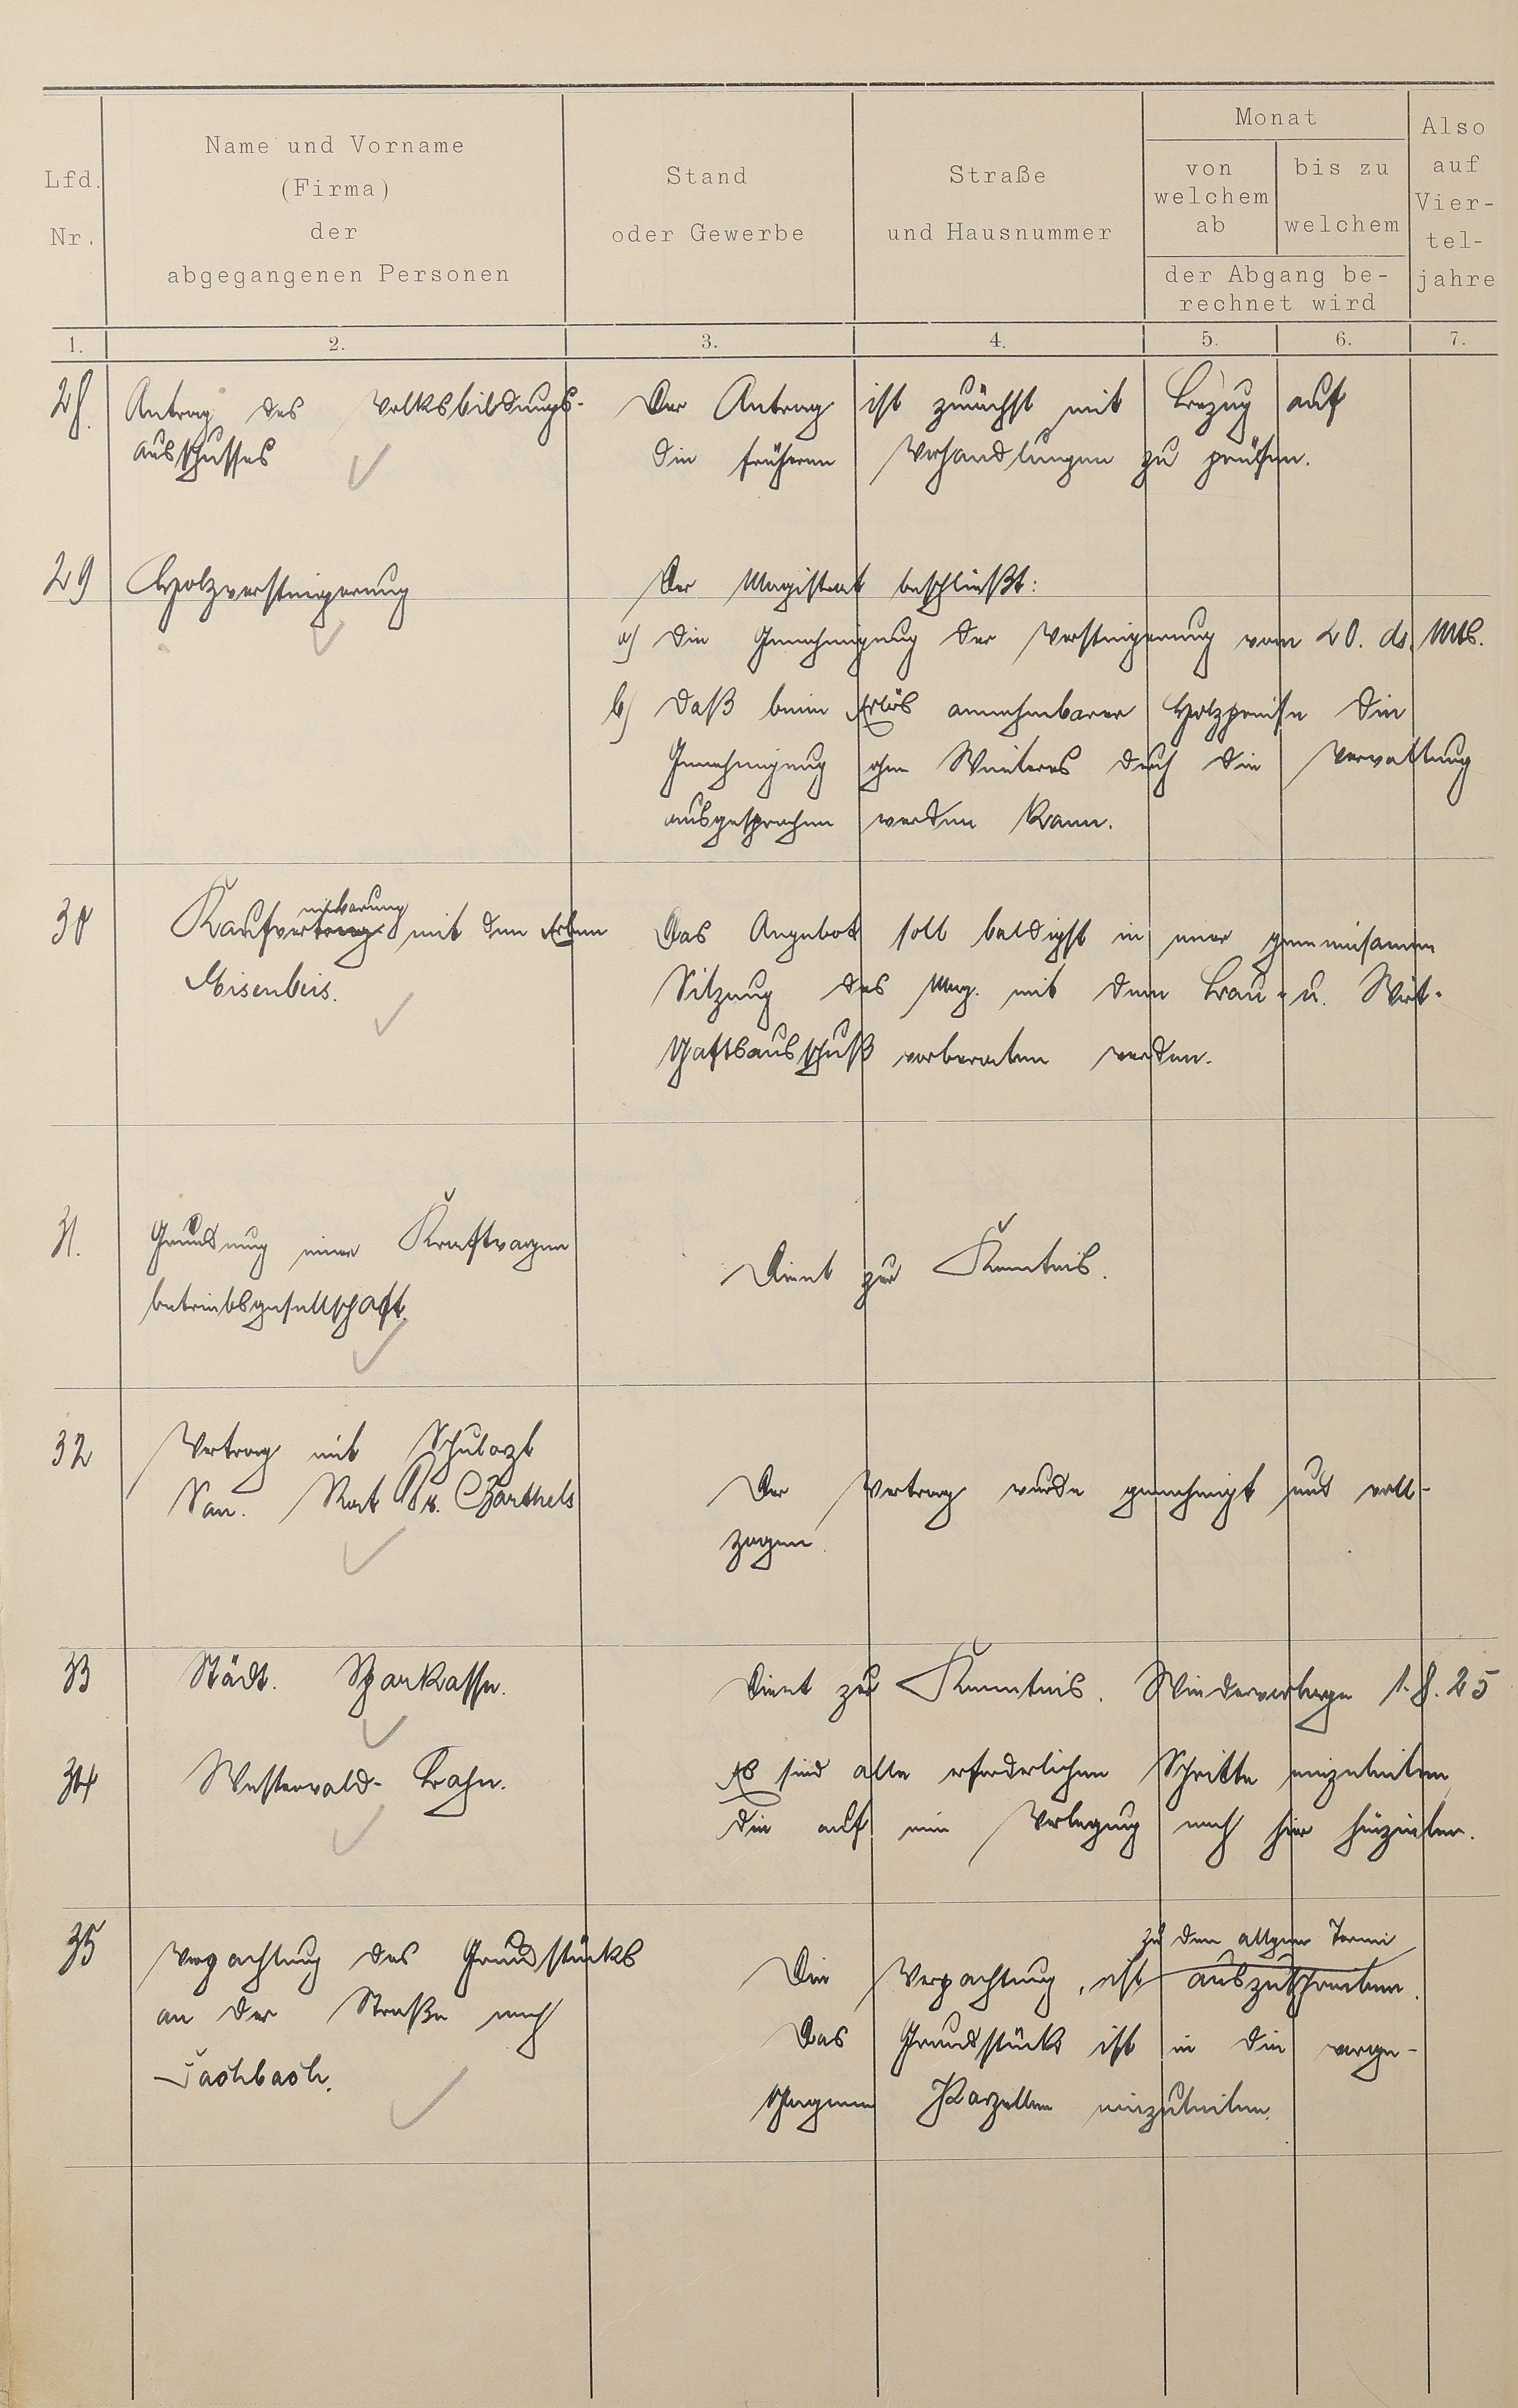 Lfd. Nr.
Name und Vorname
(Firma)
der
abgegangenen Personen
Stand
oder Gewerbe
Straße
und Hausnummer
Monat
von welchem ab
bis zu welchem
der Abgang be-
rechnet wird
Also auf Vier-tel-jahre
1. 2. 3. 4. 5. 6. 7.
28. Antrag des Volksbildungs-
ausschusses
Der Antrag ist zunächst mit Bezug auf
die früheren Verhandlungen zu prüfen.
29 Holzversteigerung
Der Magistrat beschließt:
a) die Genehmigung der Versteigerung vom 20. ds. Mts.
b) daß beim Erlös annehmbarer Holzpreise die
Genehmigung ohne Weiteres durch die Verwaltung
ausgesprochen werden kann.
30 Kaufvereinbarung mit den Erben
Eisenbeis.
Das Angebot soll baldigst in einer gemeinsamen
Sitzung des Mag. mit dem Bau- u. Wirt-
schaftsausschuß vorberaten werden.
31. Gründung einer Kraftwagen
betriebsgesellschaft.
Dient zur Kenntnis.
32 Vertrag mit Schularzt
San. Rat Dr. Barthels
Der Vertrag wurde genehmigt und voll-
zogen.
33 Städt. Sparkasse.
Dient zur Kenntnis. Wiedervorlage 1.8.25
34 Westerwald-Bahn.
Es sind alle erforderlichen Schritte einzuleiten,
die auf eine Verlegung nach hier hinzielen.
35 Verpachtung des Grundstücks
an der Straße nach
Fachbach.
zu dem allgem Termin
Die Verpachtung ist auszuschreiben.
Das Grundstück ist in die vorge-
schlagenen Parzellen einzuteilen.